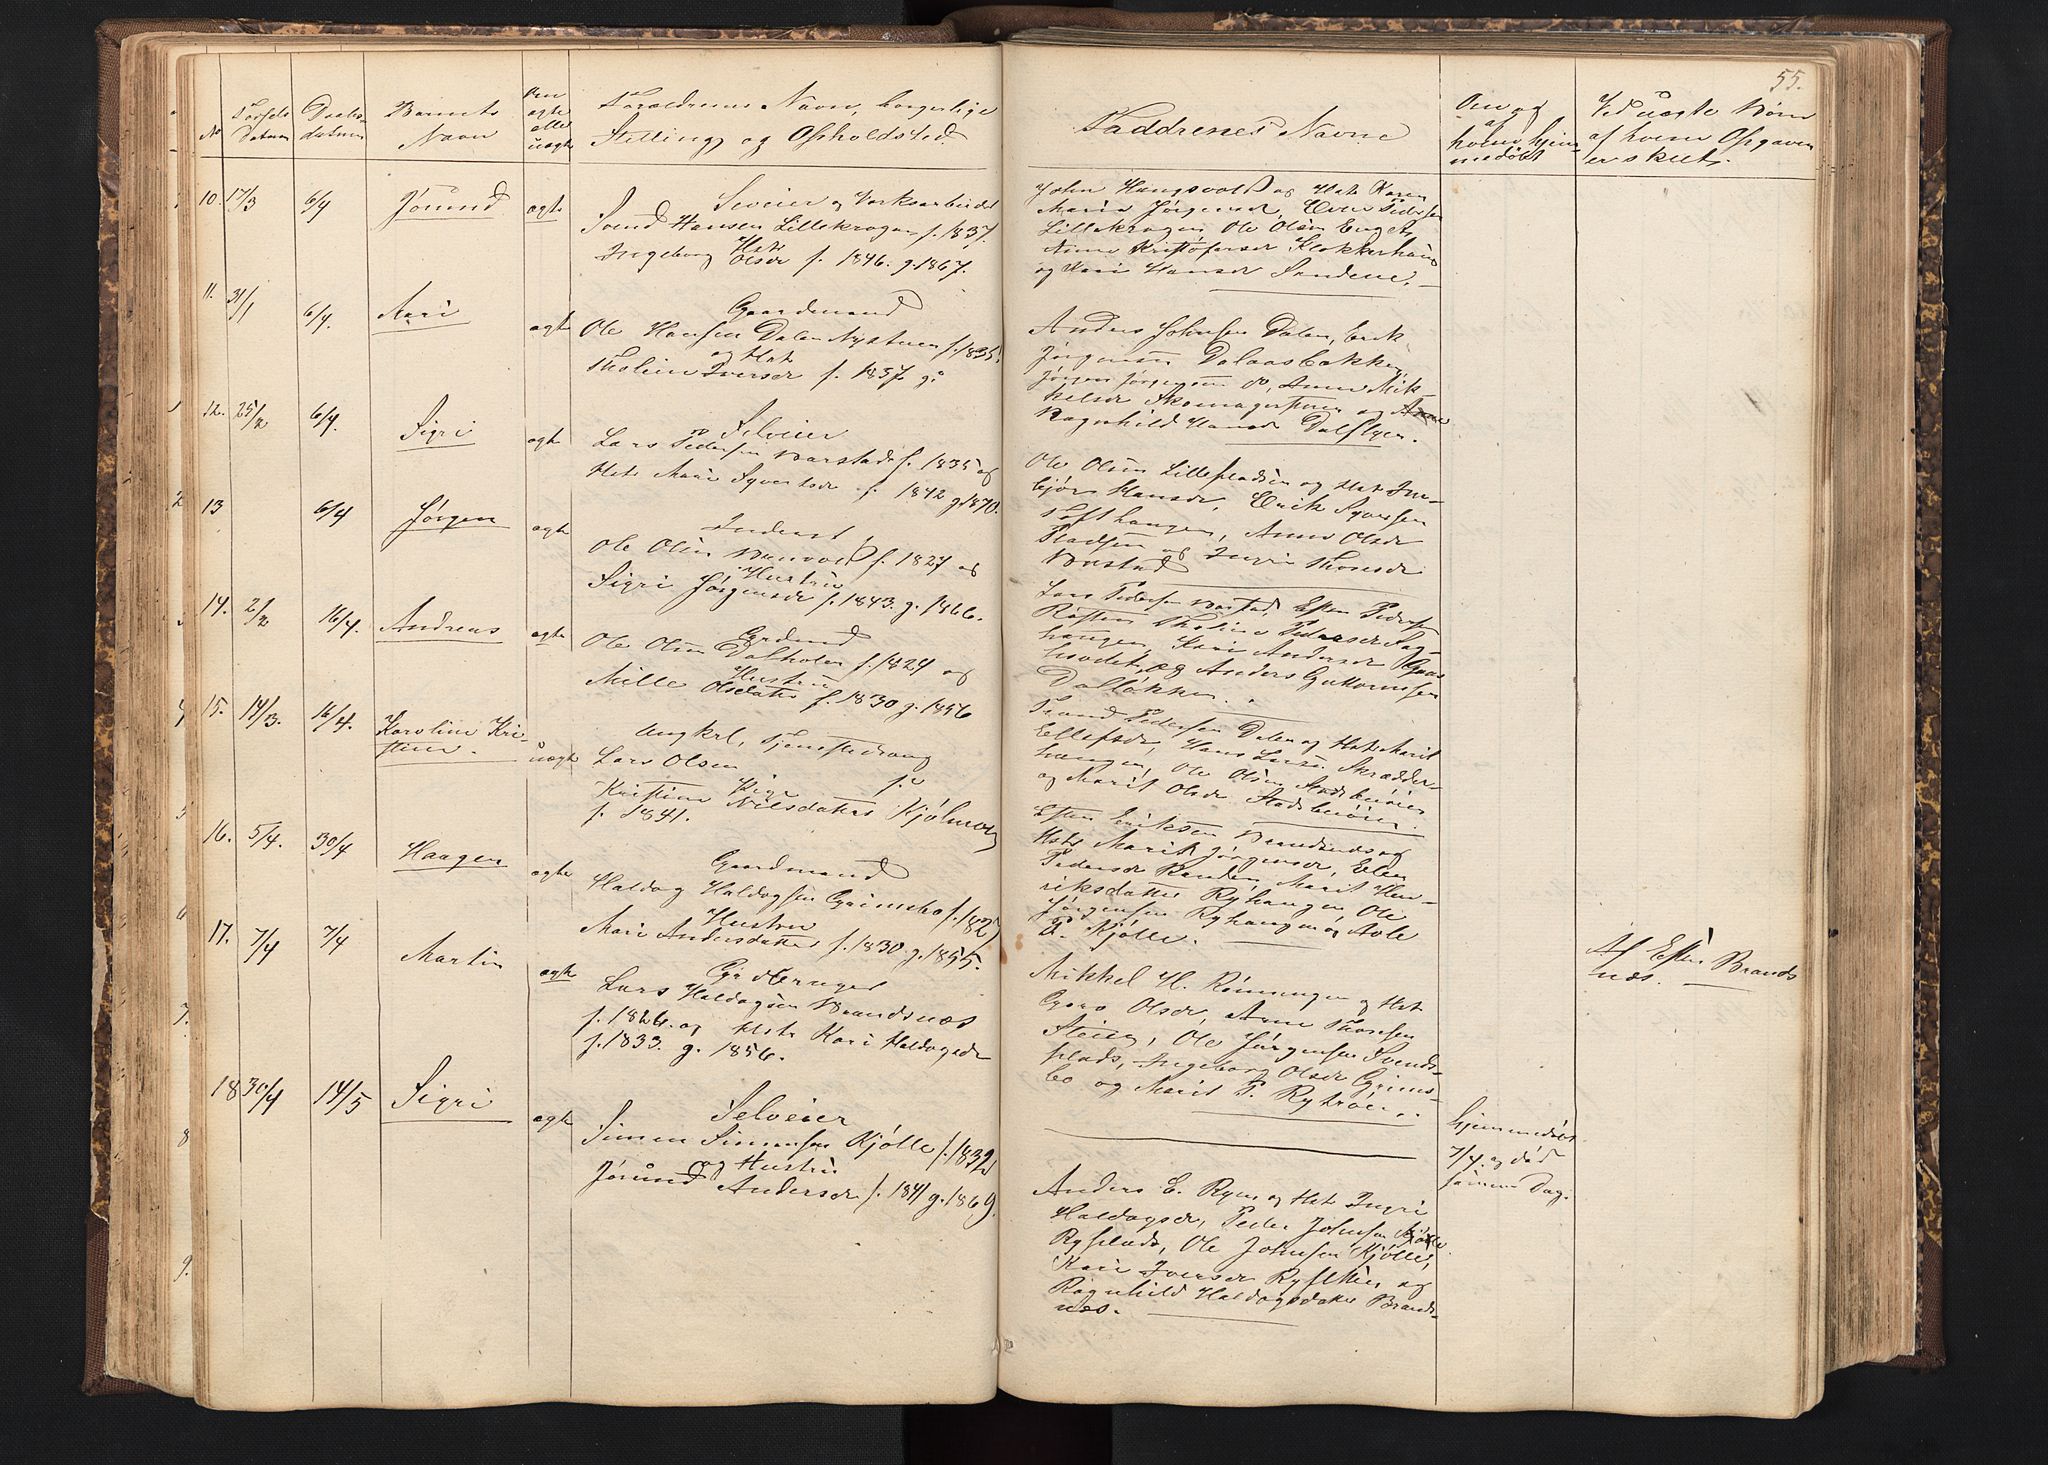 55.
No
Fødsels Datum
Daabs-datum
Barnets Navn
Om ægte eller uægte
Forældrenes Navn, borgerlige
Stilling og Opholdsted
Faddrenes Navne
Om og af hvem hjemmedøbt
Ved uægte Børn
af hvem Opgaven
er skeet.
10. 17/3 6/4 Jørund ægte
Selveier og Verksarbeider
Svend Hansen Lillekrogen f. 1837.
Hst
Ingeborg Olsdr f. 1846. g. 1867.
og Hst Karen
Maria Jørgensdr, Even Pedersen
Lillekrogen, Ole Olsen Enget,
Anne Kristofersdr Klokkerhaug
og Kari Hansdr Sandene.
11. 31/1 6/4. Kari ægte
Gaardmand
Ole Hansen Dalen Nystuen f. 1835.
og Hst
Iversdr f. 1837 g.
Anders Johnsen Dalen, Erik
Jørgensen Dalaasbakken,
Jørgen Jørgensen do, Anne Mik-
kelsdr Skomagerstuen og
Ragnhild Hansdr Dalslyen.
12. 25/2 6/4. Sigri ægte
Selveier
Lars Pedersen f. 1835 og
Hst Mari Syvertsdr f. 1842 g. 1870.
Ole Olsen og Hst Inge-
bjør Hansdr, Erik Syversen
Tofthaugen, Anne Olsdr
Pladsen og Ingri
13 6/4 Jørgen ægte
Inderst
Ole Olsen f. 1827 og
Hustru
Sigri Jørgensdr f. 1843. g. 1866.
Lars Pedersen Esten Pedersen
Pedersdr
haugen, Kari Andersdr
hovdet, og Anders Guttormsen
Dalløkken.
14. 2/2 16/4. Andreas ægte
Grdmd
Ole Olsen Dalholen f. 1824 og
Hustru
Mille Olsdatter f. 1830 g. 1856
Pedersen Dalen og Hst Marit
Ellefsdr, Hans Larsen Skrædder-
haugen, Ole Olsen
og Marit Olsdr
15. 14/3. 16/4. Karoline Kri-
stine. uægte
Ungkrl, Tjenestedreng
Lars Olsen f.
Pige
Kristine Nilsdatter Kjølmoen
f. 1841.
Esten Eriksen Brandsnes og
Hst Marit Jørgensdr, Elen
Pedersdr Randen, Marit Hen-
riksdatter Ryhaugen, Ole
Jørgensen Ryhaugen og Avle
P. Kjølle.
Af Esten Brands
næs.
16. 5/4. 30/4 Haagen ægte
Gaardmand
Haldog Haldogsen Grimsbo f. 1827
Hustru
Mari Andersdatter f. 1830 g. 1855.
Mikkel H. Rønningen og Hst
Goro Olsdr, Arne Thorsen
Steien, Ole Jørgensen Svends-
plads, Ingeborg Olsdr Grims-
bo og Marit P. Rytrøen.
17. 7/4 7/4 Martin ægte
Lars Haldogsen Brandsnæs
f. 1826. og Hst Kari Haldogsdr
f. 1833. g. 1856.
Hjemmedøbt
7/4. og død
samme Dag.
18 30/4 14/5 Sigri ægte
Selveier
Simen Simensen Kjølle f. 1832
og Hustru
Jørund Andersdr f. 1841 g. 1869.
Anders E. Ryen og Hst Ingri
Haldogsdr, Peder Johnsen
Ryplads, Ole Johnsen Kjølle,
Kari Iversdr og
Ragnhild Haldogsdatter Brands-
næs.